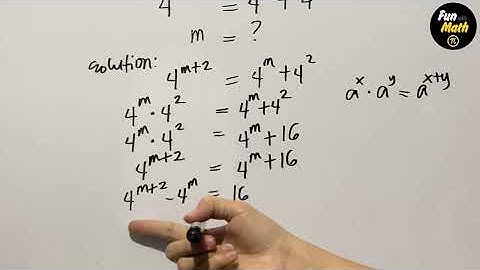 4 = 4 + 4
m = ?
solution:
4^(m+2) = 4^m + 4^2
4^m · 4^2 = 4^m + 4^2
4^m · 4^2 = 4^m + 16
4^(m+2) = 4^m + 16
4^(m+2) - 4^m = 16
a^x · a^y = a^(x+y)
Fun
Math
π